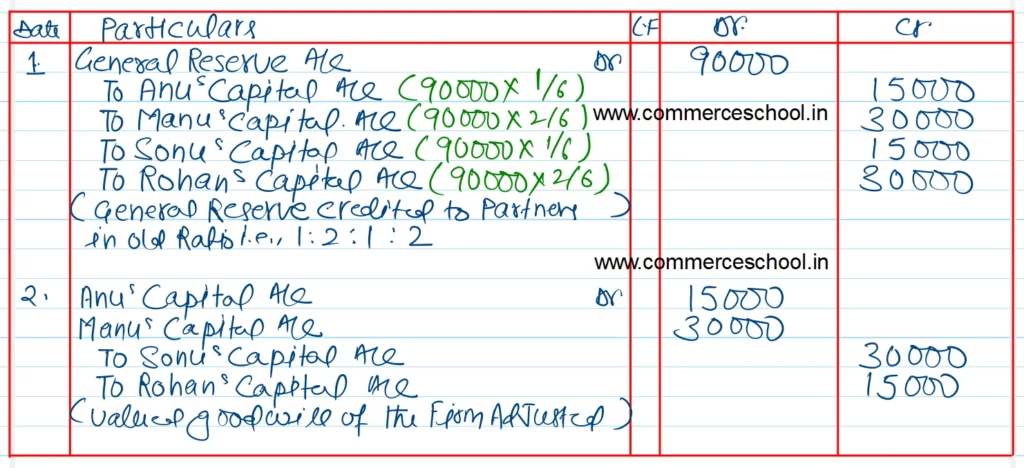 Date Particulars L.F Dr. Cr.
1. General Reserve A/c Dr 90000
To Anu's Capital A/c (90000 x 1/6) 15000
To Manu's Capital. A/c (90000 x 2/6) www.commerceschool.in 30000
To Sonu's Capital A/c (90000 x 1/6) 15000
To Rohan's Capital A/c (90000 x 2/6) 30000
(General Reserve credited to Partners)
in old Ratio i.e., 1:2:1:2
www.commerceschool.in
2. Anu's Capital A/c Dr 15000
Manu's Capital A/c 30000
To Sonu's Capital A/c 30000
To Rohan's Capital A/c 15000
(value of goodwill of the Firm Adjusted)